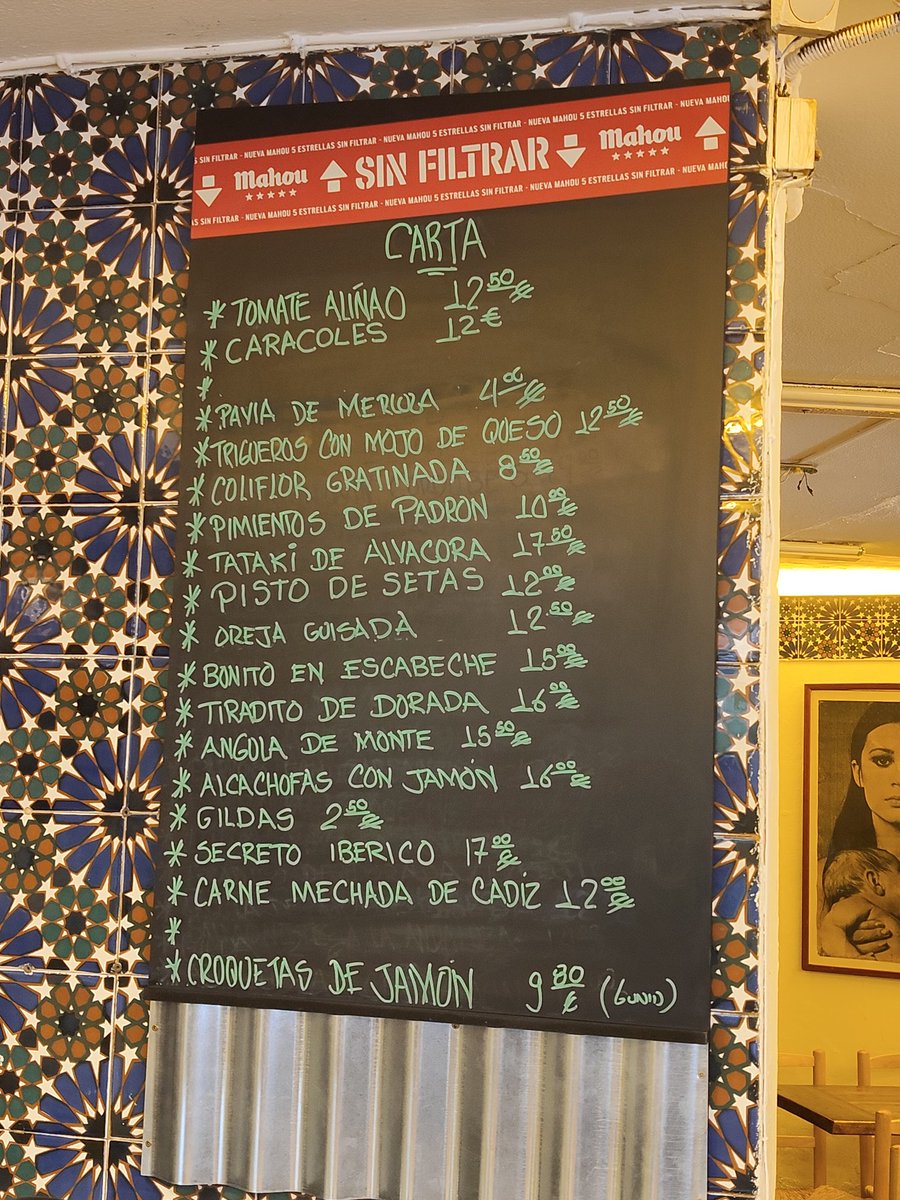 S SIN FILTRAR - NUEVA MAHOU 5 ESTRELLAS SIN FILTRAR - NUEVA MAHOU 5 ESTRELLAS SIN FILTRAR - NUEVA MAHOU 5 ESTRELLAS SIN FILTRAR - NUEVA MAHO
Mahou SIN FILTRAR Mahou
AS SIN FILTRAR - NUEVA MAHOU 5 ESTRELLAS SIN FILTRAR - NUEVA MAHOU 5 ESTRELLAS SIN FILTRAR - NUEVA MAHOU 5 ESTRELLAS SIN FILTRAR
CARTA
* TOMATE ALIÑAO 12 50 €
* CARACOLES 12 €
*
* PAVIA DE MERLUZA 4 00 €
* TRIGUEROS CON MOJO DE QUESO 12 50 €
* COLIFLOR GRATINADA 8 50 €
* PIMIENTOS DE PADRON 10 00 €
* TATAKI DE ALVACORA 17 50 €
* PISTO DE SETAS 12 00 €
* OREJA GUISADA 12 50 €
* BONITO EN ESCABECHE 15 00 €
* TIRADITO DE DORADA 16 00 €
* ANGOLA DE MONTE 15 50 €
* ALCACHOFAS CON JAMÓN 16 00 €
* GILDAS 2 50 €
* SECRETO IBERICO 17 00 €
* CARNE MECHADA DE CADIZ 12 00 €
*
* CROQUETAS DE JAMÓN 9 80 € (6 UNID)